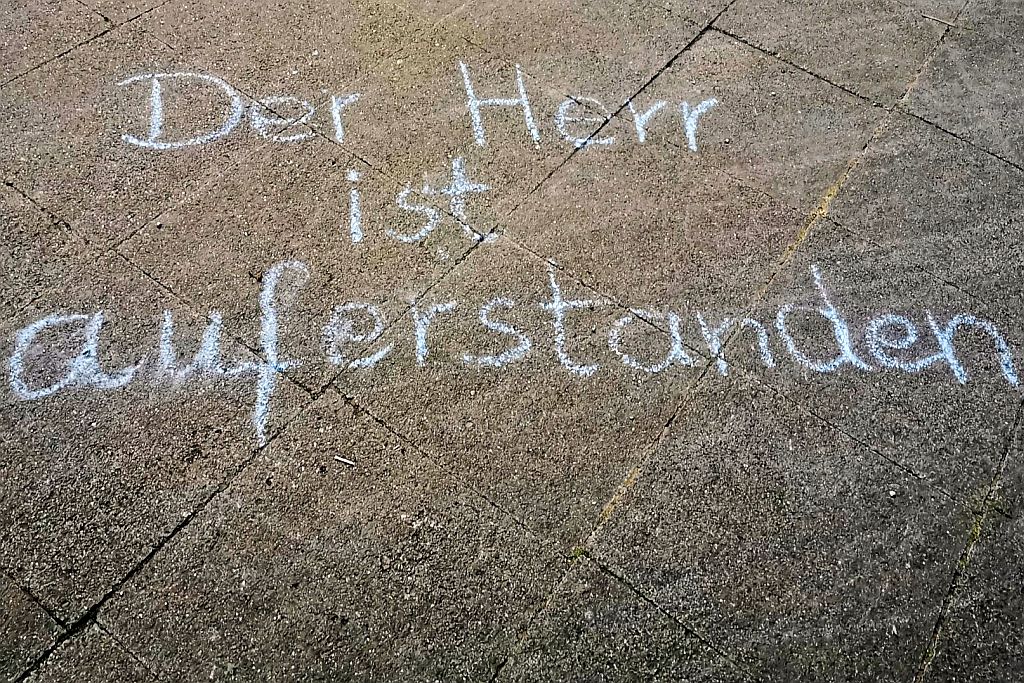 Der Herr
ist
auferstanden